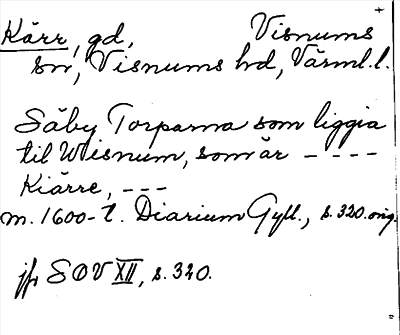 Kärr, gd, Visnums
sn, Visnums hd, Värml.l.
Säby Torparna som liggia
til Wisnum, som är – – – –
Kiärre, – – –
m. 1600-t. Diarium Gyll., s. 320. orig.
jfr SOV XII, s. 320.